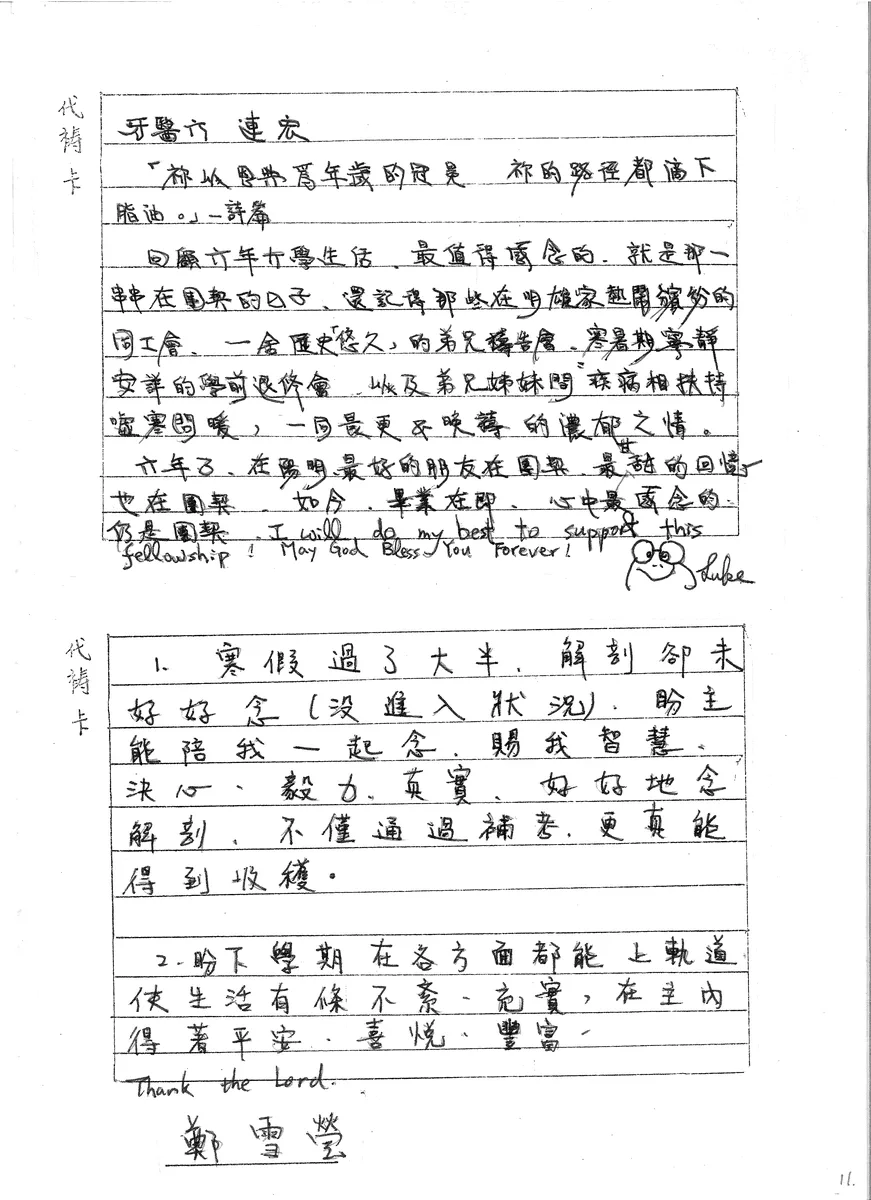 代禱卡
牙醫六 連宏
「祢以恩典為年歲的冠冕 祢的路徑都滴下
脂油。」—詩篇
回顧六年大學生活、最值得感念的、就是那一
串串在團契的日子、還記得那些在明雄家熱鬧繽紛的
同工會、一舍歷史「悠久」的弟兄禱告會、寒暑期寧靜
安詳的學前退修會 以及弟兄姊妹間 疾病相扶持
噓寒問暖,一同最更不晚禱的濃郁之情。
六年了、在陽明最好的朋友在團契、最甘甜的回憶
也在團契、如今、畢業在即、心中最感念的、
仍是團契、I will do my best to support this
fellowship! May God Bless You Forever!
Luke
代禱卡
1. 寒假過了大半、解剖卻未
好好念(沒進入狀況)、盼主
能陪我一起念、賜我智慧、
決心、毅力、真實、好好地念
解剖、不僅通過補考、更真能
得到收穫。
2. 盼下學期在各方面都能上軌道
使生活有條不紊、充實,在主內
得著平安、喜悅、豐富、
Thank the Lord.
鄭雪瑩
11.